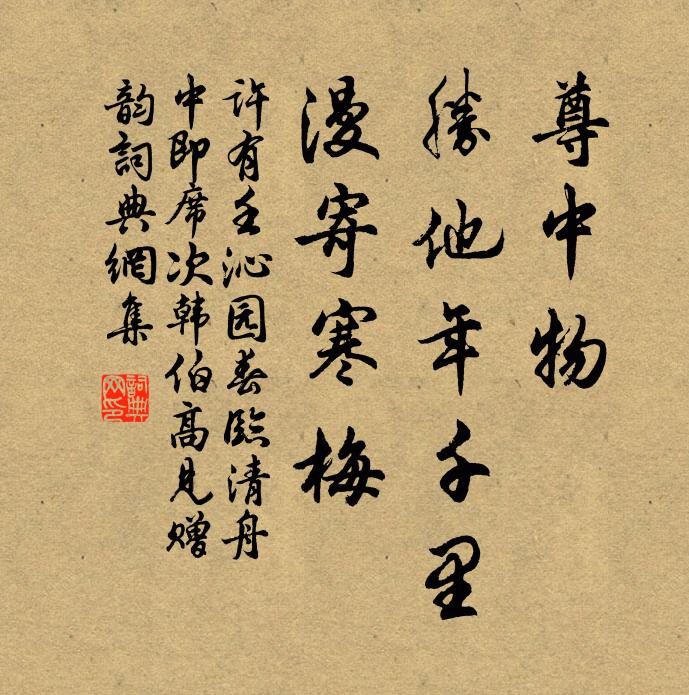 尊中物
勝他年千里
漫寄寒梅
许有壬沁园春臨清舟
中即席次韩伯高見赠
韵詞典網集
詞典网印